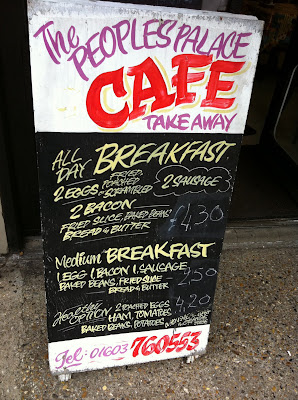 The
PEOPLES PALACE
CAFE
TAKE AWAY
ALL DAY BREAKFAST
2 EGGS FRIED, POACHED or SCRAMBLED 2 SAUSAGE
2 BACON
FRIED SLICE, BAKED BEANS
BREAD & BUTTER 4.30
Medium BREAKFAST
1 EGG 1 BACON 1 SAUSAGE
BAKED BEANS, FRIED SLICE
BREAD & BUTTER
OPTION 2 POACHED EGGS 4.20
HAM, TOMATOES
BAKED BEANS, POTATOES
Tel: 01603 760553